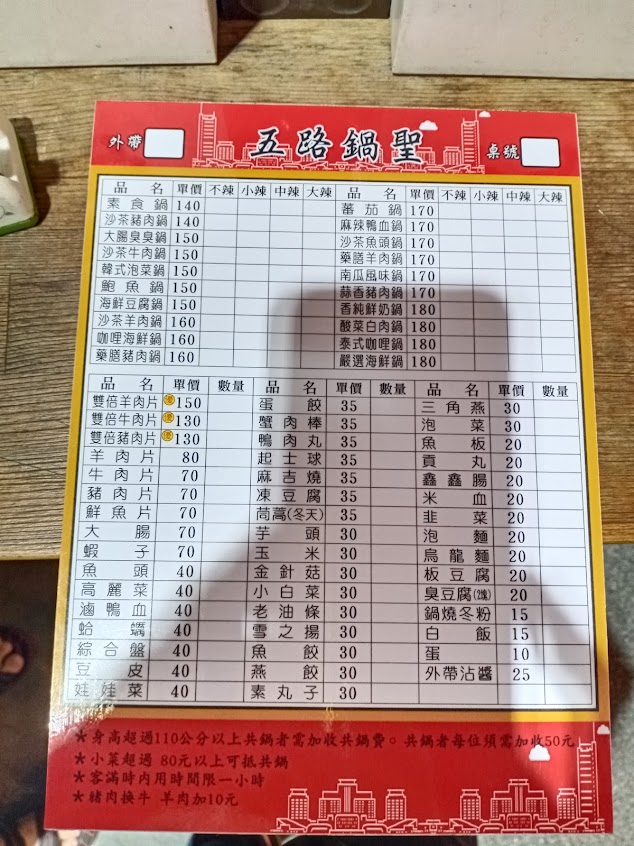 外帶 五路鍋聖 桌號
品名 單價 不辣 小辣 中辣 大辣 品名 單價 不辣 小辣 中辣 大辣
素食鍋 140 蕃茄鍋 170
沙茶豬肉鍋 140 麻辣鴨血鍋 170
大腸臭臭鍋 150 沙茶魚頭鍋 170
沙茶牛肉鍋 150 藥膳羊肉鍋 170
韓式泡菜鍋 150 南瓜風味鍋 170
鮑魚鍋 150 蒜香豬肉鍋 170
海鮮豆腐鍋 150 香純鮮奶鍋 180
沙茶羊肉鍋 160 酸菜白肉鍋 180
咖哩海鮮鍋 160 泰式咖哩鍋 180
藥膳豬肉鍋 160 嚴選海鮮鍋 180
品名 單價 數量 品名 單價 數量 品名 單價 數量
雙倍羊肉片 150 蛋餃 35 三角燕 30
雙倍牛肉片 130 蟹肉棒 35 泡菜 30
雙倍豬肉片 130 鴨肉丸 35 魚板 20
羊肉片 80 起士球 35 貢丸 20
牛肉片 70 麻吉燒 35 鑫鑫腸 20
豬肉片 70 凍豆腐 35 米血 20
鮮魚片 70 茼蒿(冬天) 35 韭菜 20
大腸 70 芋頭 30 泡麵 20
蝦子 70 玉米 30 烏龍麵 20
魚頭 40 金針菇 30 板豆腐 20
高麗菜 40 小白菜 30 臭豆腐 20
滷鴨血 40 老油條 30 鍋燒冬粉 15
蛤蠣 40 雪之揚 30 白飯 15
綜合盤 40 魚餃 30 蛋 10
豆皮 40 燕餃 30 外帶沾醬 25
娃娃菜 40 素丸子 30
＊身高超過110公分以上共鍋者需加收共鍋費。共鍋者每位須需加收50元
＊小菜超過 80元以上可抵共鍋
＊客滿時內用時間限一小時
＊豬肉換牛 羊肉加10元